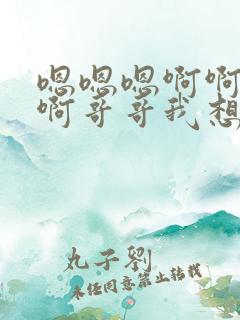 嗯嗯嗯啊啊
啊哥哥我想
丸子劉
未经同意禁止转载